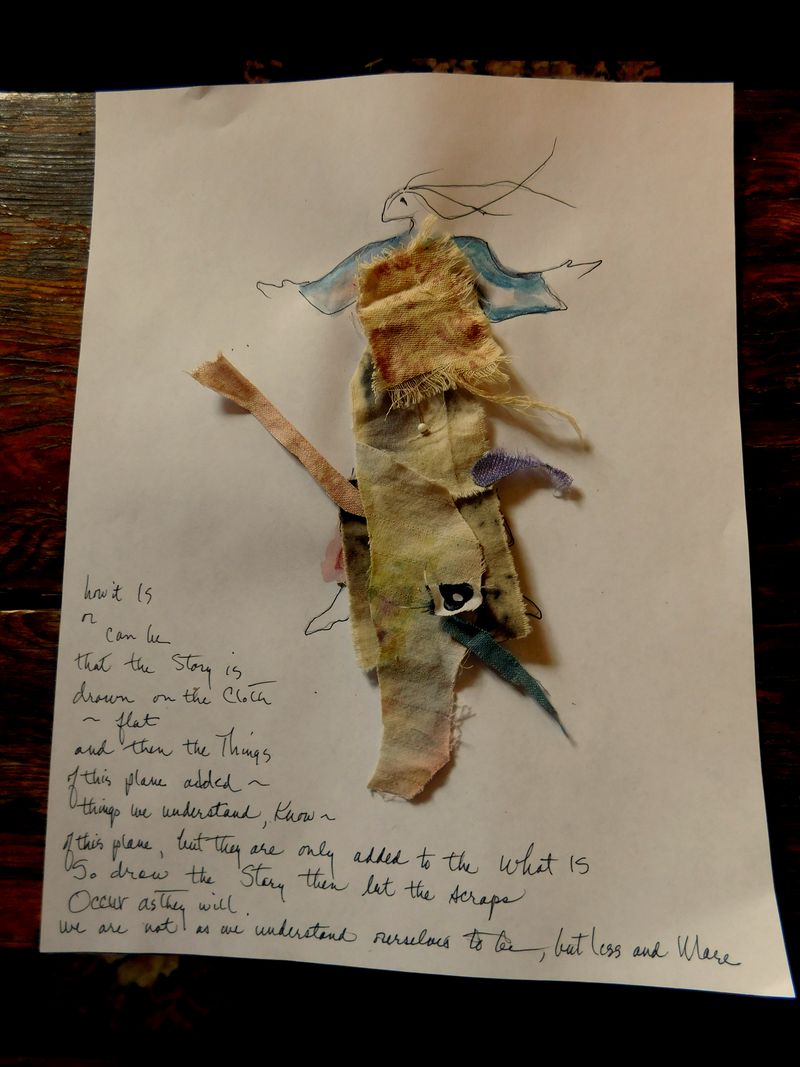 how it Is
or
can be
that the Story is
drawn on the Cloth
~ flat
and then the Things
of this plane added ~
things we understand, Know ~
of this plane, but they are only added to the What IS
So draw the Story then let the scraps
Occur as They will.
we are not as we understand ourselves to be, but less and More